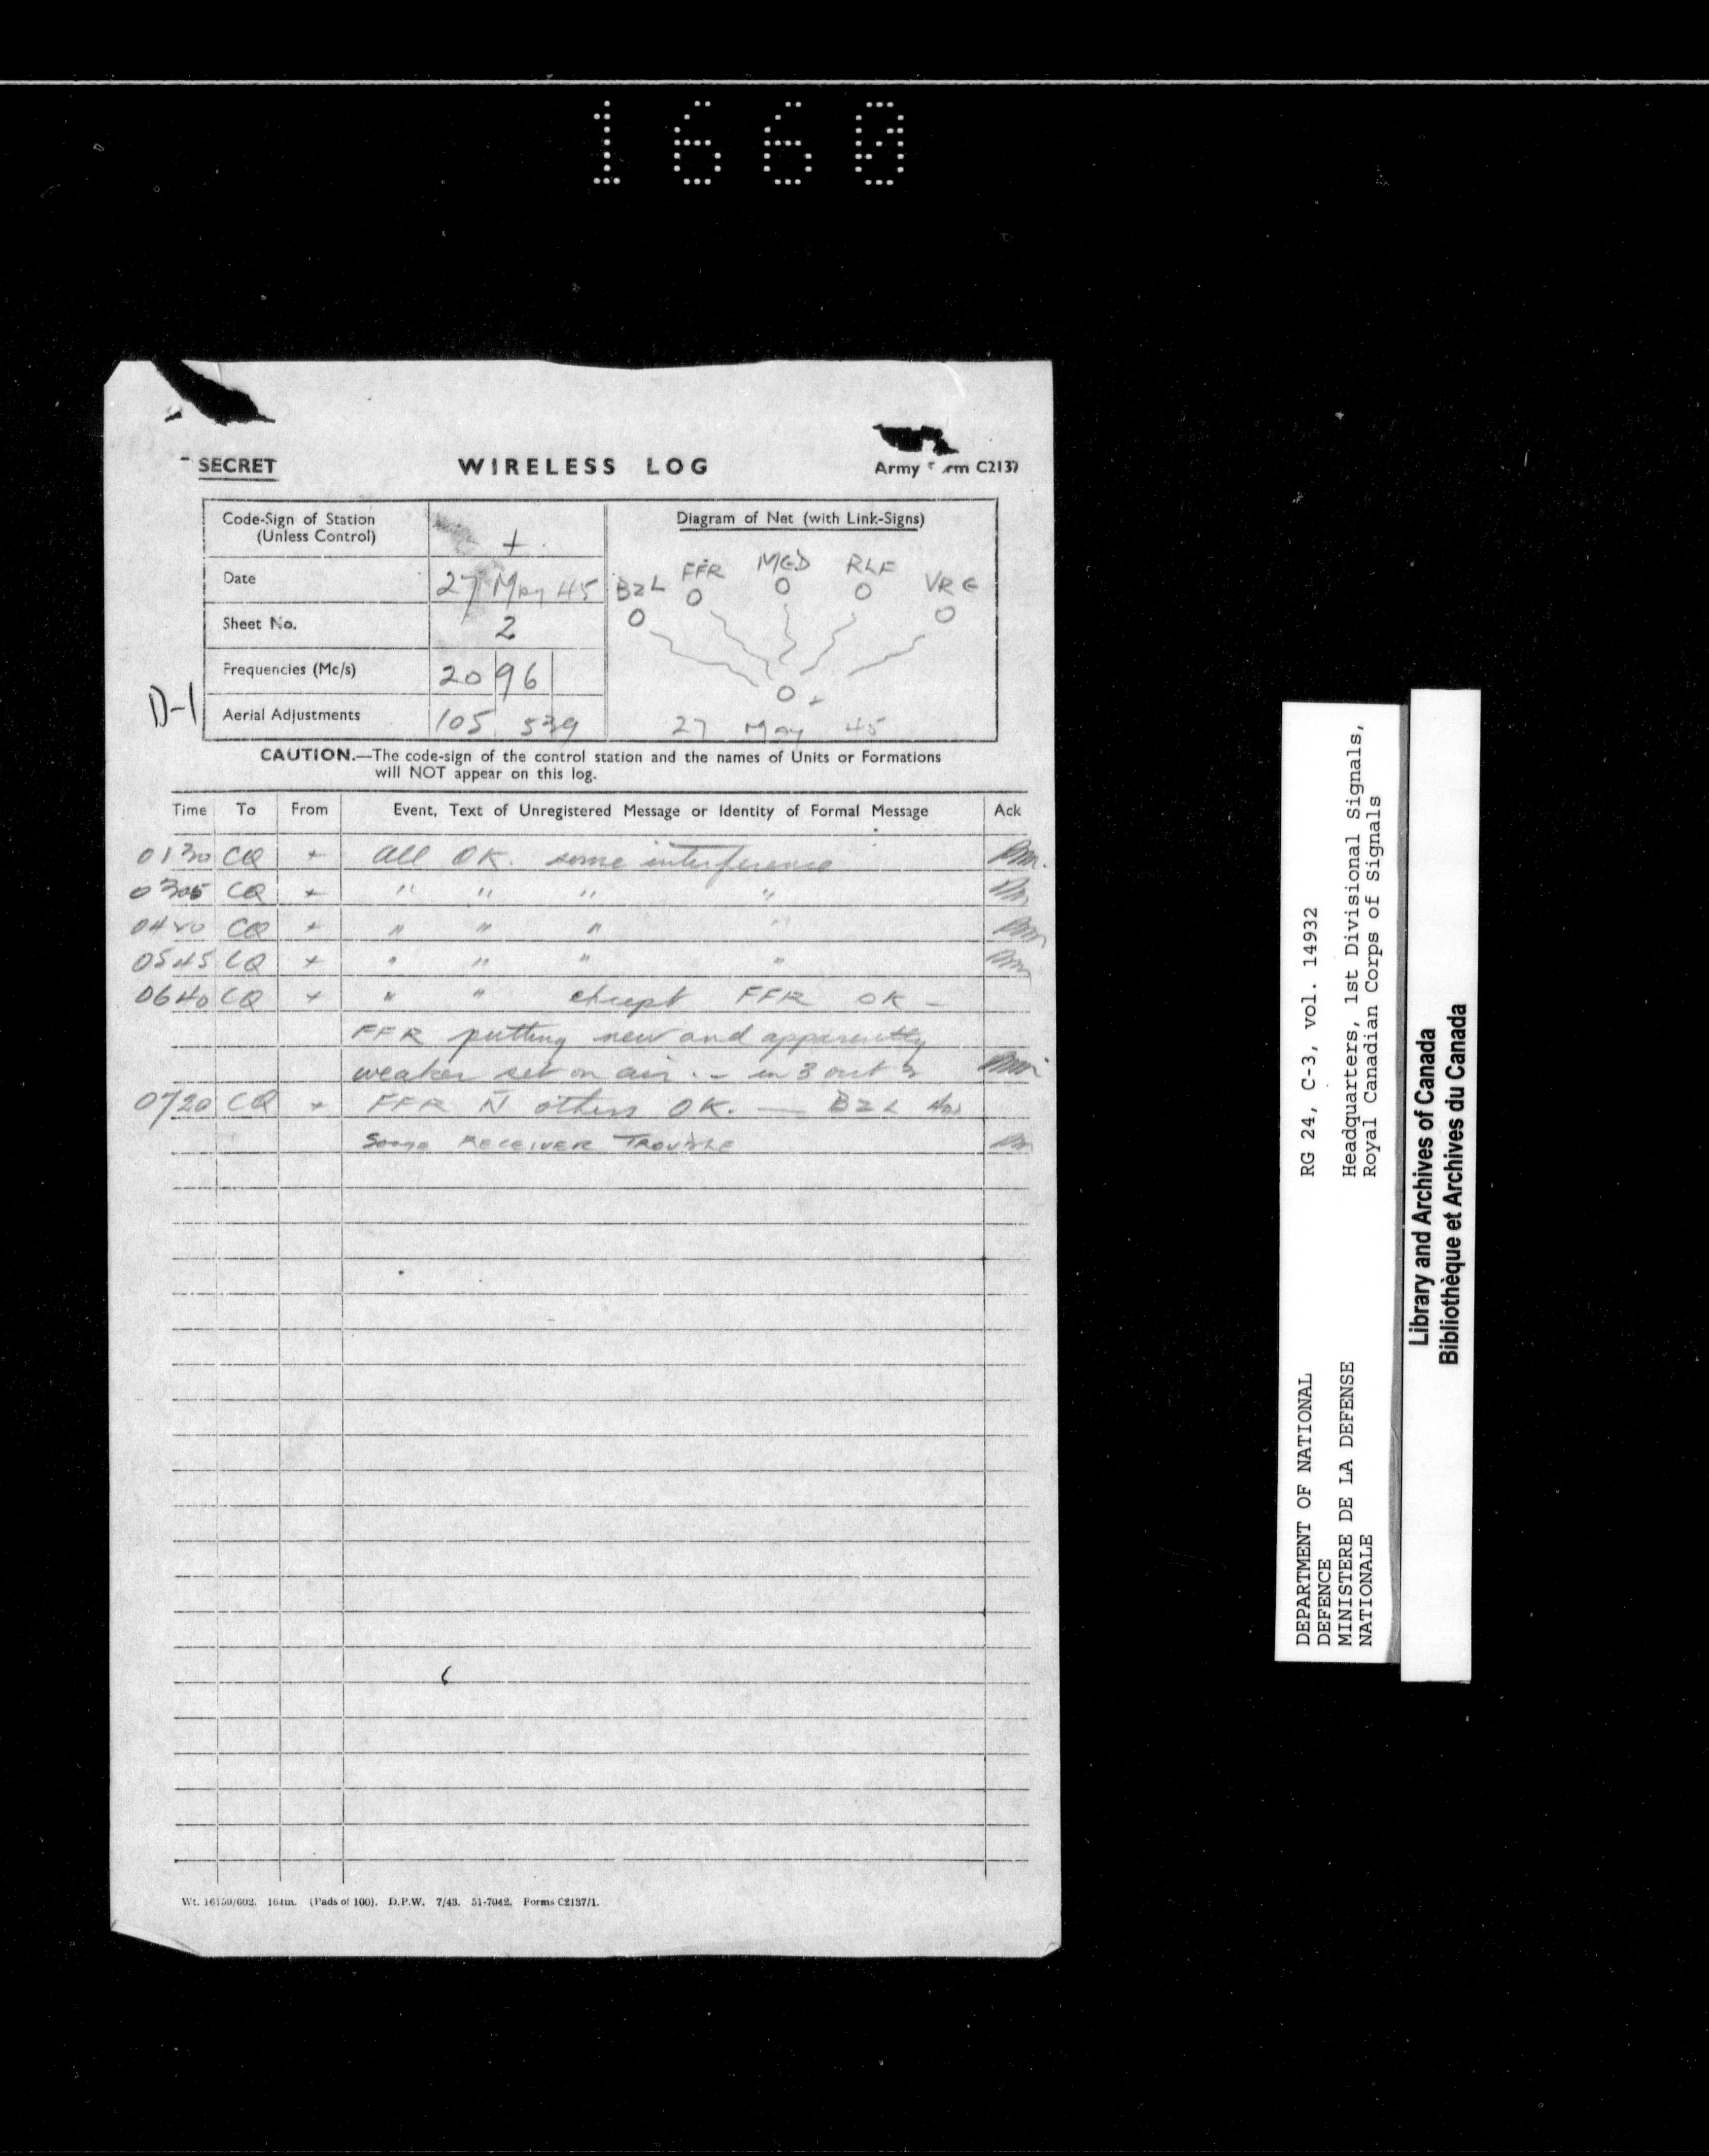 1660
SECRET
WIRELESS LOG
Army rm C2137
Code-Sign of Station
(Unless Control)
+
Diagram of Net (with Link-Signs)
Date
27 May 45
BZL FFR MGD RLF VRG
Sheet No.
2
Frequencies (Mc/s)
20 96
D-1
Aerial Adjustments
105 539
27 May 45
CAUTION.—The code-sign of the control station and the names of Units or Formations
will NOT appear on this log.
Time To From Event, Text of Unregistered Message or Identity of Formal Message Ack
0130 CQ + All OK. some interference
0305 CQ + " " " "
CQ + " " " "
0545 CQ + " " " "
0640 CQ + " " except FFR OK –
FFR putting new and apparently
weaker set on air. – in 3 out
0720 CQ + FFR N others OK. — BZL has
Some RECEIVER TROUBLE
Wt. 16159/602. 164m. (Pads of 100). D.P.W. 7/43. 51-7042. Forms C2137/1.
DEPARTMENT OF NATIONAL
DEFENCE
MINISTERE DE LA DEFENSE
NATIONALE
RG 24, C-3, vol. 14932
Headquarters, 1st Divisional Signals,
Royal Canadian Corps of Signals
Library and Archives of Canada
Bibliothèque et Archives du Canada